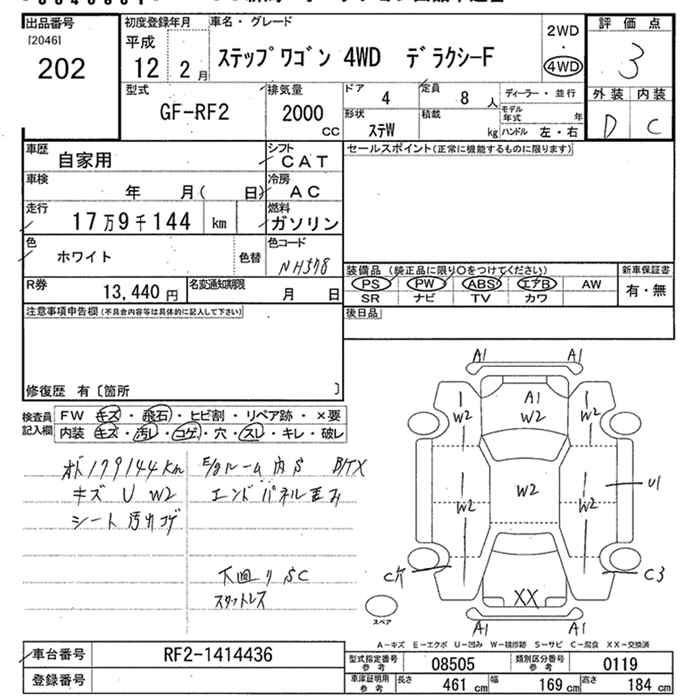 出品番号
[2046]
202
初度登録年月
平成
12 2月
車名・グレード
ステップワゴン 4WD デラクシーF
2WD
・
4WD
評価点
3
外装 内装
D C
型式
GF-RF2
排気量
2000
CC
ドア
4
定員
8 人
形状
ステW
積載
kg
ディーラー・並行
モデル年式 年
ハンドル 左・右
車歴
自家用
シフト
CAT
車検
年 月( 日)
冷房
AC
走行
17万9千144 km
燃料
ガソリン
色
ホワイト
色替
色コード
NH578
R券
13,440 円
名変通知期限
月 日
注意事項申告欄 (不具合内容等は具体的に記入して下さい)
修復歴 有 〔箇所 〕
セールスポイント(正常に機能するものに限ります)
装備品 (純正品に限り○をつけてください)
PS PW ABS エアB AW
SR ナビ TV カワ
新車保証書
有・無
後日品
検査員記入欄
FW キズ・飛石・ヒビ割・リペア跡・×要
内装 キズ・汚レ・コゲ・穴・スレ・キレ・破レ
179144Km
キズ U W2
シート 汚れコゲ
E/gルーム内 S
エンドパネル歪み
下廻り SC
スタットレス
A1 A1
A1
W2
W2 W2
W2
W2 W2
U1
C3
XX
A1 A1
スペア
A-キズ E-エクボ U-凹み W-補修跡 S-サビ C-腐食 XX-交換済
車台番号
RF2-1414436
登録番号
型式指定番号 参考
08505
類別区分番号 参考
0119
車庫証明用 参考
長さ 461 cm
幅 169 cm
高さ 184 cm